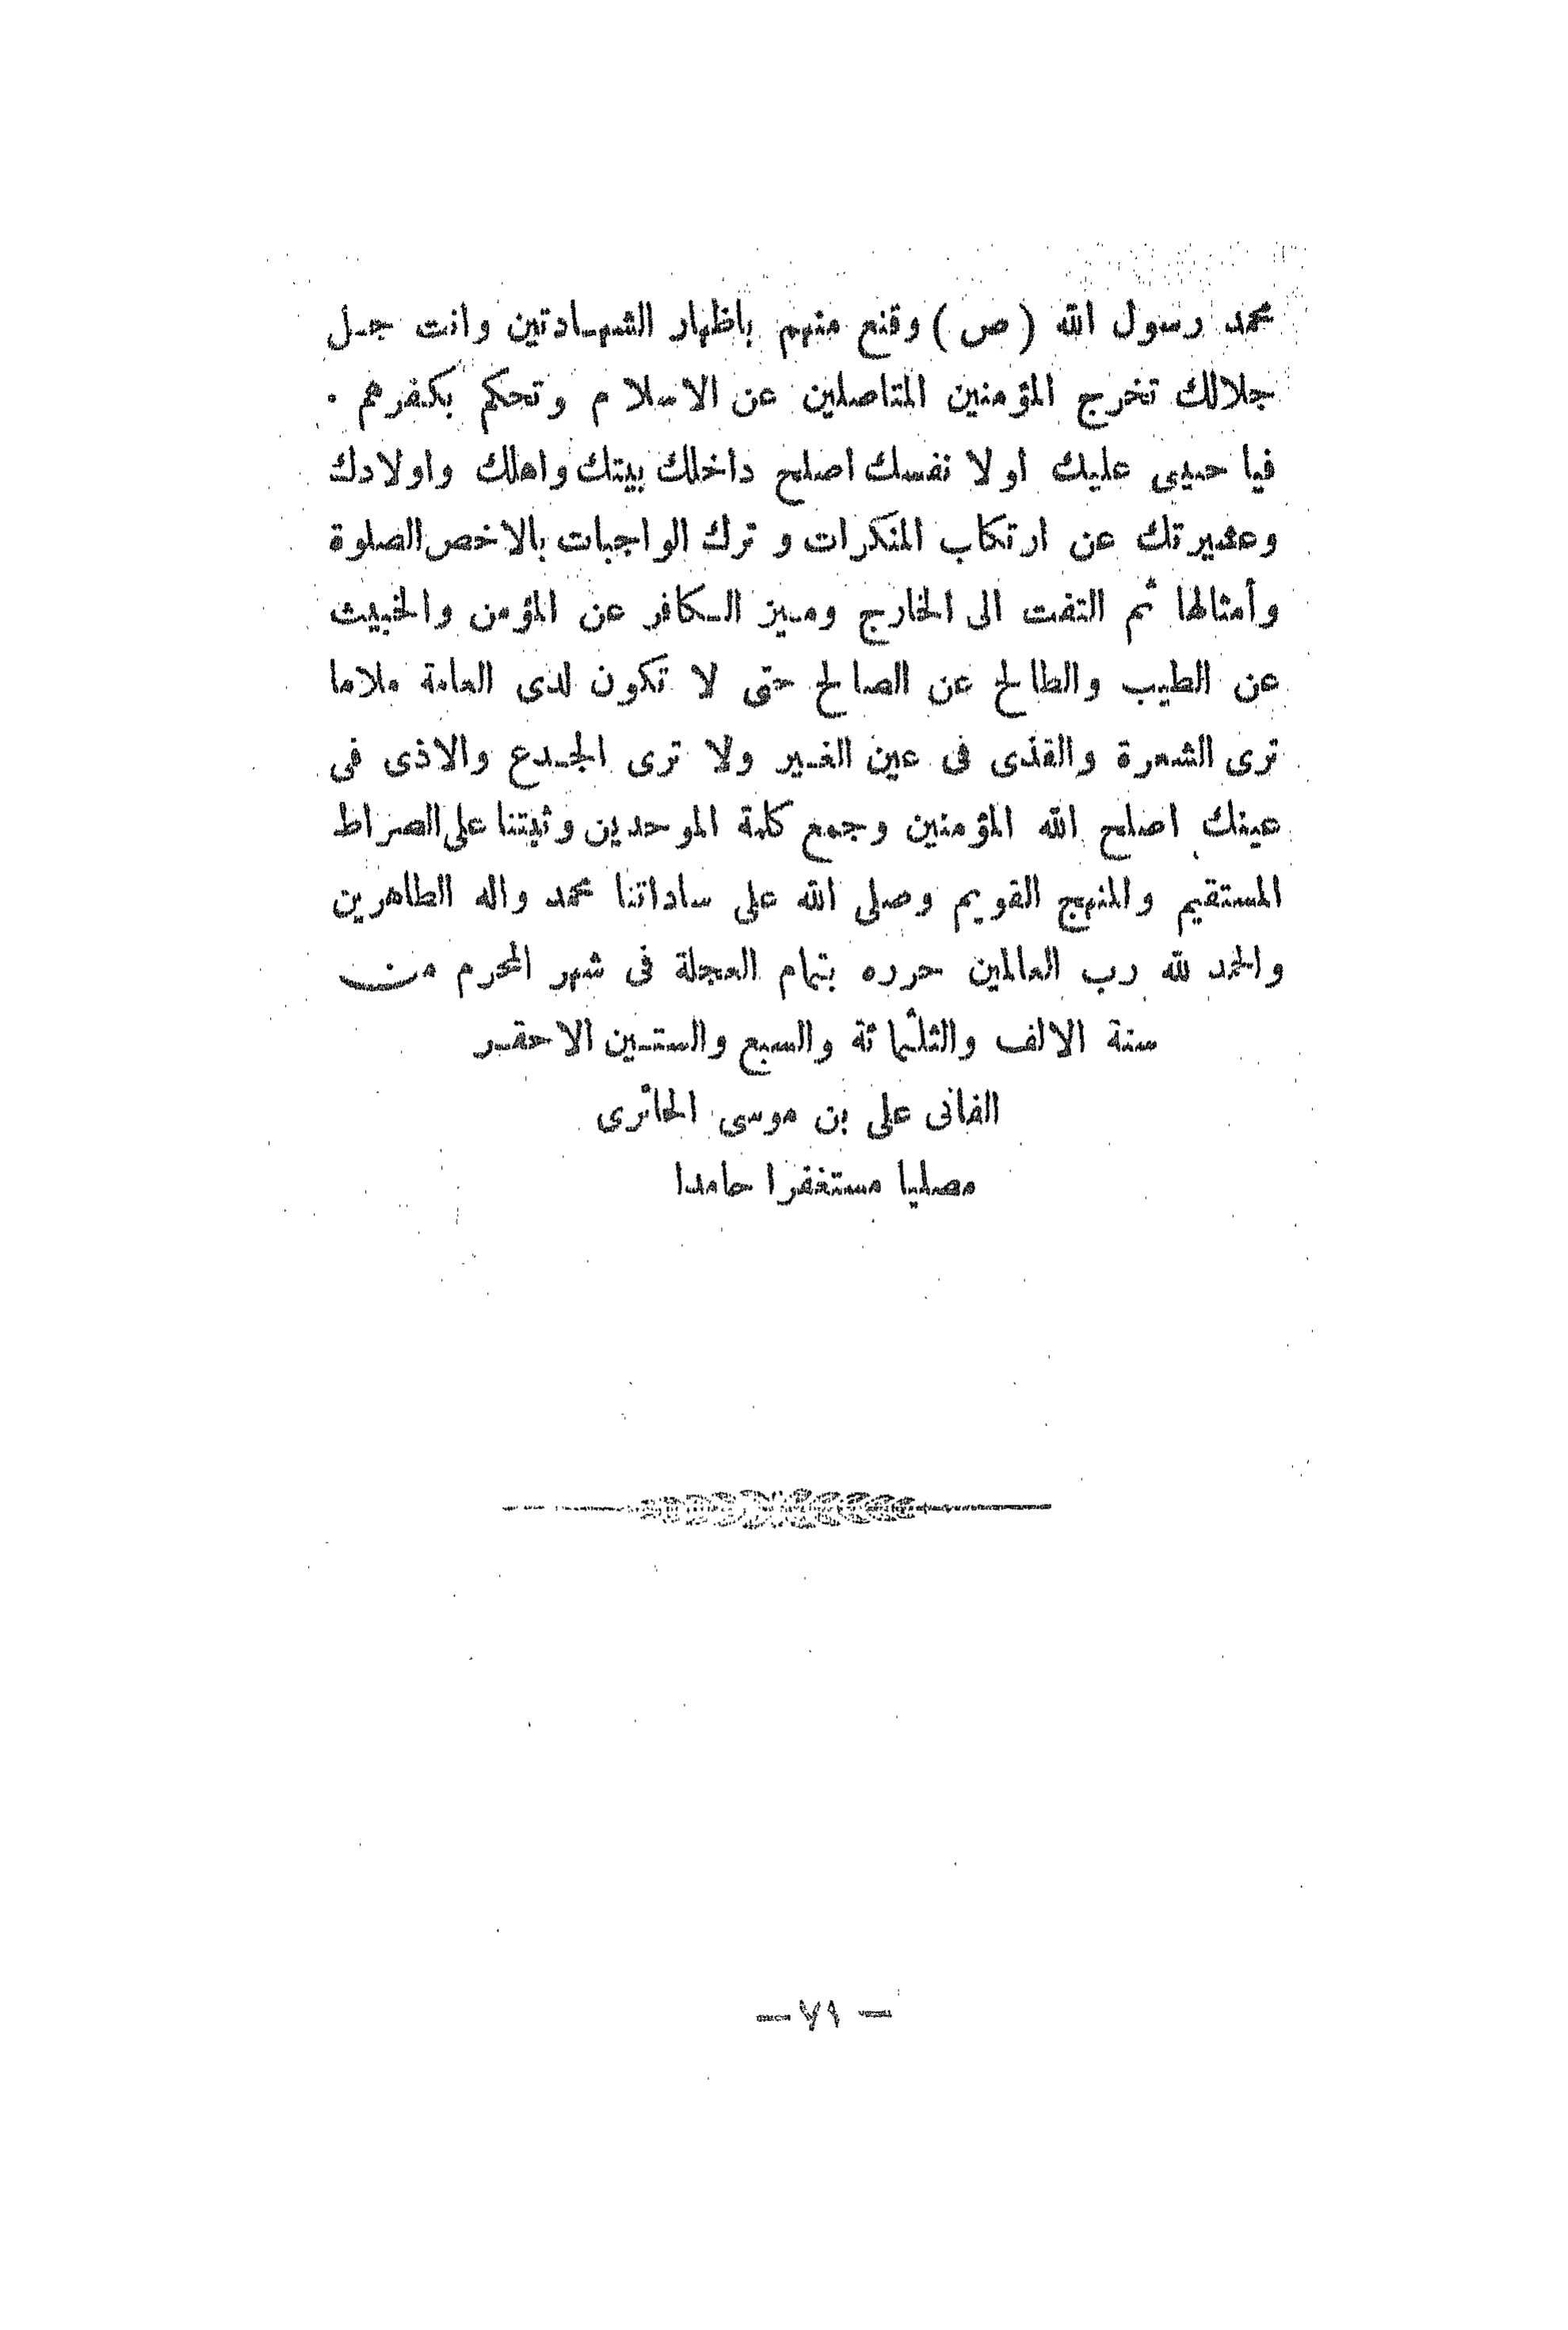 محمد رسول الله ( ص ) وقنع منهم باظهار الشهادتين وانت جل
جلالك تخرج المؤمنين المتاصلين عن الاسلام وتحكم بكفرهم .
فيا حبيبى عليك اولا نفسك اصلح داخلك بيتك واهلك واولادك
وعشيرتك عن ارتكاب المنكرات و ترك الواجبات بالاخص الصلوة
وأمثالها ثم التفت الى الخارج وميز الكافر عن المؤمن والخبيث
عن الطيب والطالح عن الصالح حتى لا تكون لدى العامة ملاما
ترى الشعرة والقذى فى عين الغير ولا ترى الجدع والاذى فى
عينك اصلح الله المؤمنين وجمع كلمة الموحدين وثبتنا على الصراط
المستقيم والمنهج القويم وصلى الله على ساداتنا محمد واله الطاهرين
والحمد لله رب العالمين حرره بتمام العجلة فى شهر المحرم من
سنة الالف والثلثمائة والسبع والستين الاحقر
الفانى على بن موسى الحائرى
مصليا مستغفرا حامدا
— ٧١ —